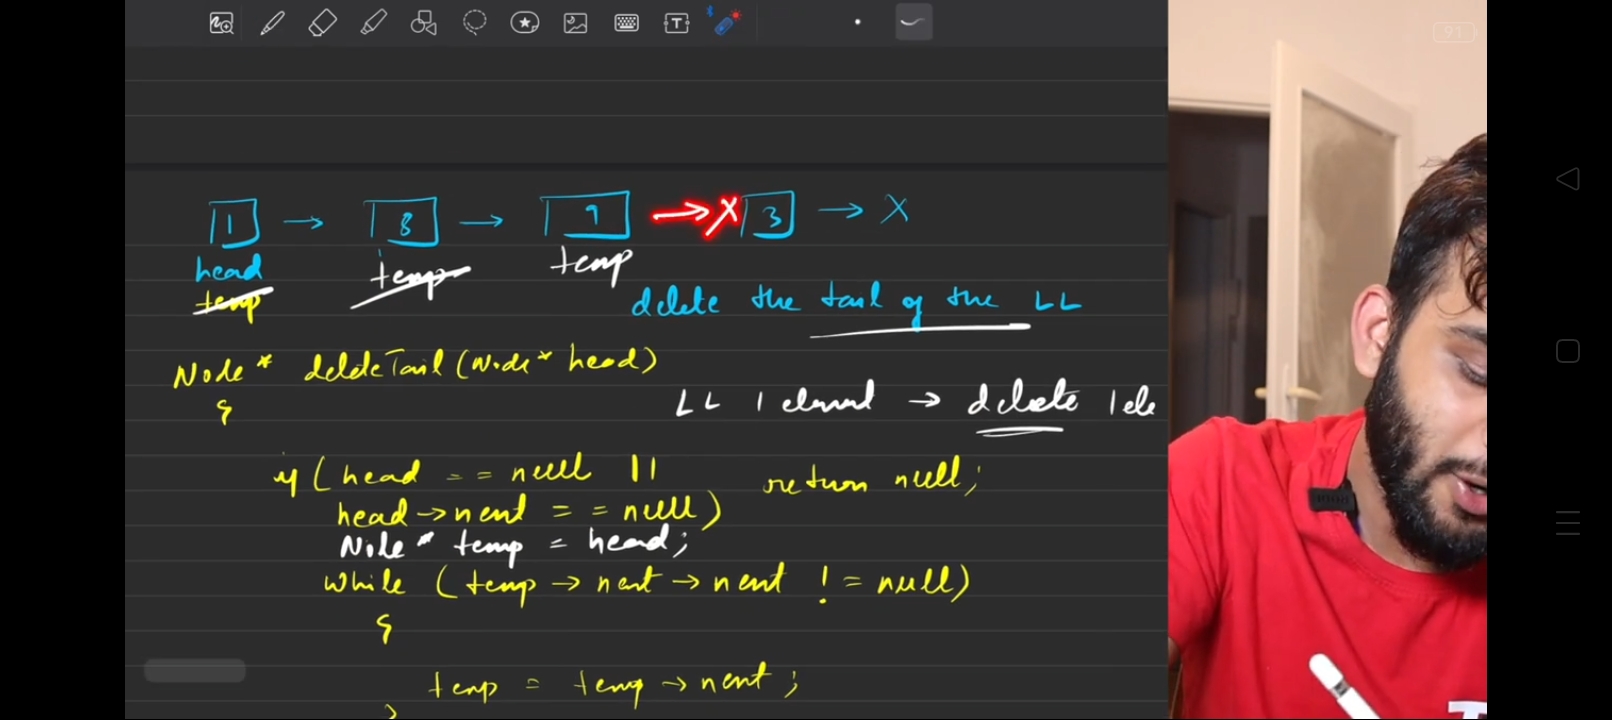 91
1 → 8 → 9 → X 3 → X
head temp temp
temp
delete the tail of the LL
Node* deleteTail(Node* head)
{
LL 1 element → delete 1 ele
if (head == null || return null;
head→next == null)
Node* temp = head;
while (temp → next → next != null)
{
temp = temp → next;
}